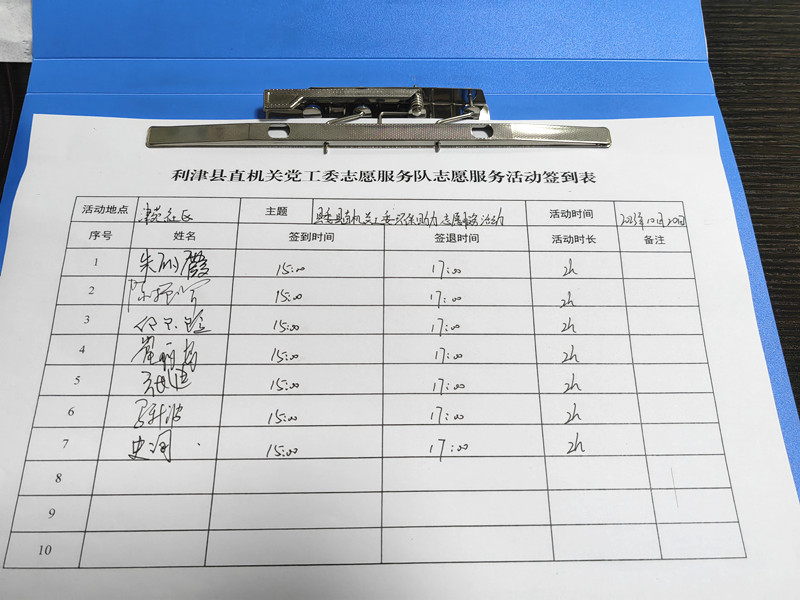 利津县直机关党工委志愿服务队志愿服务活动签到表
活动地点 津苑社区 主题 志愿服务活动 活动时间 10月20日
序号 姓名 签到时间 签退时间 活动时长 备注
1 15:00 17:00 2h
2 15:00 17:00 2h
3 15:00 17:00 2h
4 15:00 17:00 2h
5 15:00 17:00 2h
6 15:00 17:00 2h
7 史润 15:00 17:00 2h
8
9
10